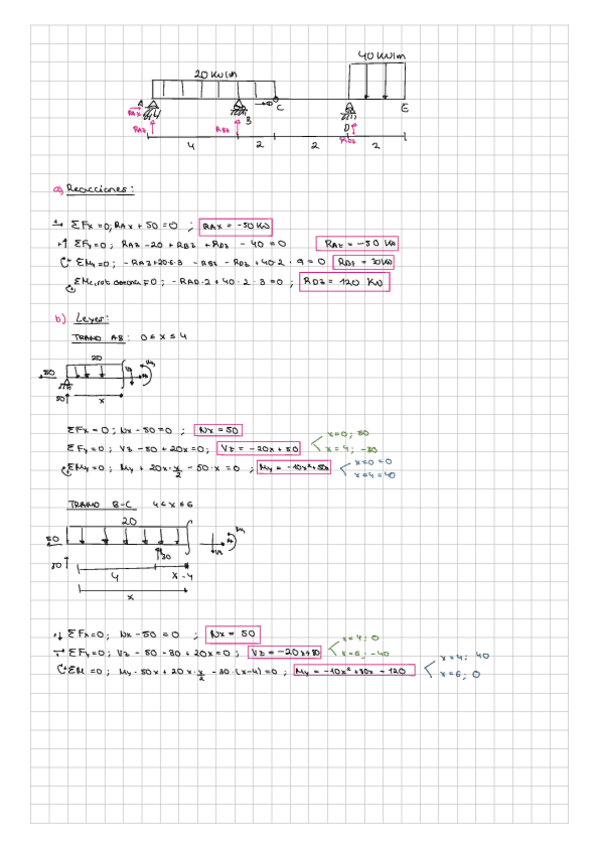 40 KN/m
20 KN/m
A
C
E
RAX
B
D
RAZ
RBZ
RDZ
4
2
2
2
a) Reacciones:
ΣFx=0; RAX + 50 = 0 ; RAX = -50 KN
ΣFz=0; RAZ - 20 + RBZ + RDZ - 40 = 0
ΣMy=0; - RAZ+20·6·3 - RBZ - RDZ + 40·2 · 9 = 0
- RAD·2 + 40·2·3 = 0 ; RDZ = 120 KN
b) Leyes:
TRAMO AB: 0 ≤ x ≤ 4
20
50
50
x
ΣFx = 0; Nx - 50 = 0 ; Nx = 50
x=0; 50
ΣFz=0; Vz - 50 + 20x = 0; Vz = -20x + 50
x=4; -30
ΣMy=0; My + 20x·x/2 - 50·x = 0 ; My = -10x²+50x
x=0 = 0
x=4 = 40
TRAMO B-C 4<x≤6
20
50
50
30
4
x-4
x
ΣFx=0; Nx - 50 = 0 ; Nx = 50
x=4; 0
ΣFz=0; Vz - 50 - 30 + 20x = 0 ; Vz = -20x+80
x=6; -40
ΣM =0; My - 50x + 20x·x/2 - 30·(x-4) = 0 ; My = -10x² + 80x - 120
x=4; 40
x=6; 0